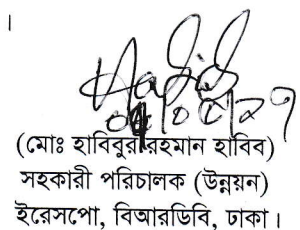 ।
(মোঃ হাবিবুর রহমান হাবিব)
সহকারী পরিচালক (উন্নয়ন)
ইরেসপো, বিআরডিবি, ঢাকা।